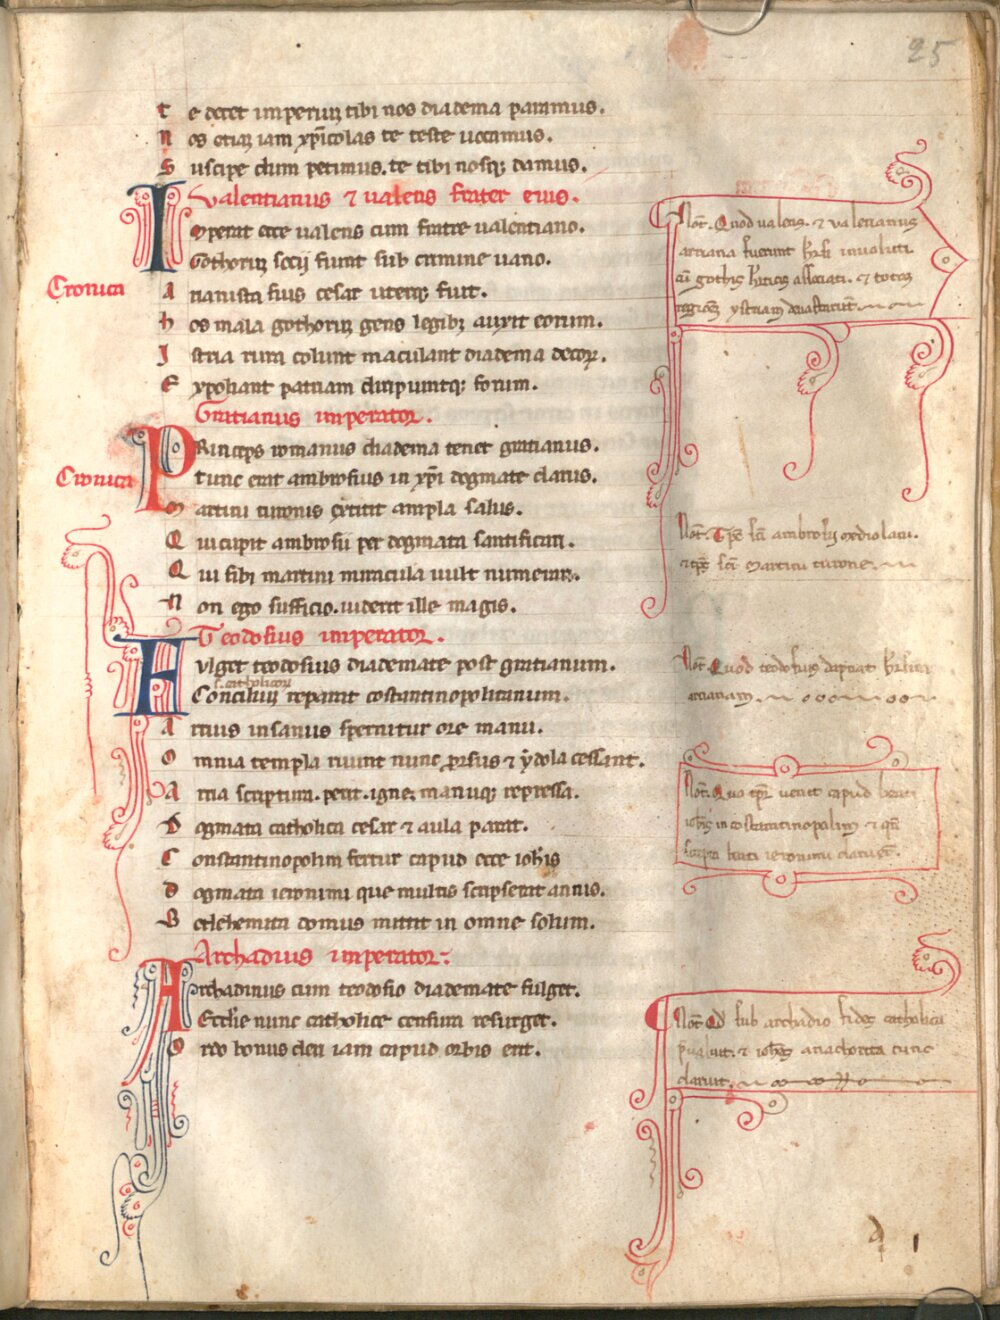 25
Te decet imperiuz tibi nos diadema paramus.
Nos etiaz iam xp̃icolas te teste uocamus.
Suscipe dum petimus. te tibi nosqz damus.
Valentianus ⁊ ualens frater eius.
Imperat ecce ualens cum fratre ualentiano.
Gothoruz socij fiunt sub crimine uano.
Cronica
Arrianista suus cesar uterqz fuit.
hos mala gothoruz gens legibz auxit eorum.
Istria tum colunt maculant diadema decorz.
Expoliant patriam diripiuntqz forum.
Gratianus imperator.
PRinceps romanus diadema tenet gratianus.
Cronica
tunc erat ambrosius in xp̃i dogmate clarus.
Martini turonis extitit ampla salus.
Qui cupit ambrosii per dogmata santificari.
Qui sibi martini miracula uult numerari.
Non ego sufficio. uiderit ille magis.
Teodosius imperator.
Fulget teodosius diademate post gratianum.
s. catholicorz
Conciliuz reparat costantinopolitanum.
Arrius insanus spernitur ore manu.
Omnia templa ruunt nunc prorsus ⁊ ydola cessant.
Arria scriptura. perit. igne. manuqz repressa.
Dogmata catholica cesar ⁊ aula parat.
Constantinopolim fertur capud ecce ioh̃is
dogmata ieronimi que multis scripserat annis.
Bethlehemita domus mittit in omne solum.
Archadius imperator:
Archadinus cum teodosio diademate fulget.
Ecclẽie nunc catholice censura resurget.
Ordo bonus cleri iam capud orbis erit.
Not̃. Quod ualens. ⁊ valentianus
arriana fuerunt h̃esi inuoluti
cũ gothis h̃eticis associati. ⁊ totaz
regionẽ ystriam deuastarũt.
Not̃. Tp̃e sc̃i ambrosij mediolani.
⁊ tp̃e sc̃i Martini turone.
Not̃. Quod teodosius dapnat h̃esim
arrianam.
Not̃. Quo tp̃r uenit capud beati
ioh̃is in costantinopolim ⁊ qñ
scripta beati ieronimi claruer̃.
Not̃ Qd̃ sub archadio fides catholica
p̃ualuit. ⁊ ioh̃es anachorita tunc
claruit.